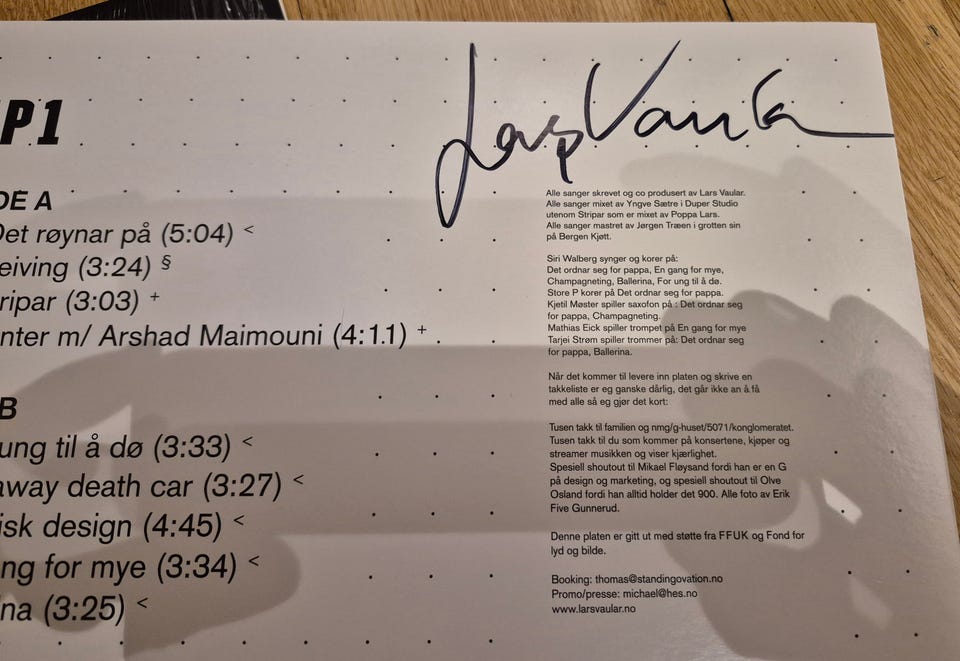 Lars Vaular
P1
DE A
Det røynar på (5:04) <
eiving (3:24) §
ripar (3:03) +
nter m/ Arshad Maimouni (4:11) +
B
ung til å dø (3:33) <
away death car (3:27) <
isk design (4:45) <
ng for mye (3:34) <
na (3:25) <
Alle sanger skrevet og co produsert av Lars Vaular.
Alle sanger mixet av Yngve Sætre i Duper Studio
utenom Stripar som er mixet av Poppa Lars.
Alle sanger mastret av Jørgen Træen i grotten sin
på Bergen Kjøtt.
Siri Walberg synger og korer på:
Det ordnar seg for pappa, En gang for mye,
Champagneting, Ballerina, For ung til å dø.
Store P korer på Det ordnar seg for pappa.
Kjetil Møster spiller saxofon på : Det ordnar seg
for pappa, Champagneting.
Mathias Eick spiller trompet på En gang for mye
Tarjei Strøm spiller trommer på: Det ordnar seg
for pappa, Ballerina.
Når det kommer til levere inn platen og skrive en
takkeliste er eg ganske dårlig, det går ikke an å få
med alle så eg gjør det kort:
Tusen takk til familien og nmg/g-huset/5071/konglomeratet.
Tusen takk til du som kommer på konsertene, kjøper og
streamer musikken og viser kjærlighet.
Spesiell shoutout til Mikael Fløysand fordi han er en G
på design og marketing, og spesiell shoutout til Olve
Osland fordi han alltid holder det 900. Alle foto av Erik
Five Gunnerud.
Denne platen er gitt ut med støtte fra FFUK og Fond for
lyd og bilde.
Booking: thomas@standingovation.no
Promo/presse: michael@hes.no
www.larsvaular.no